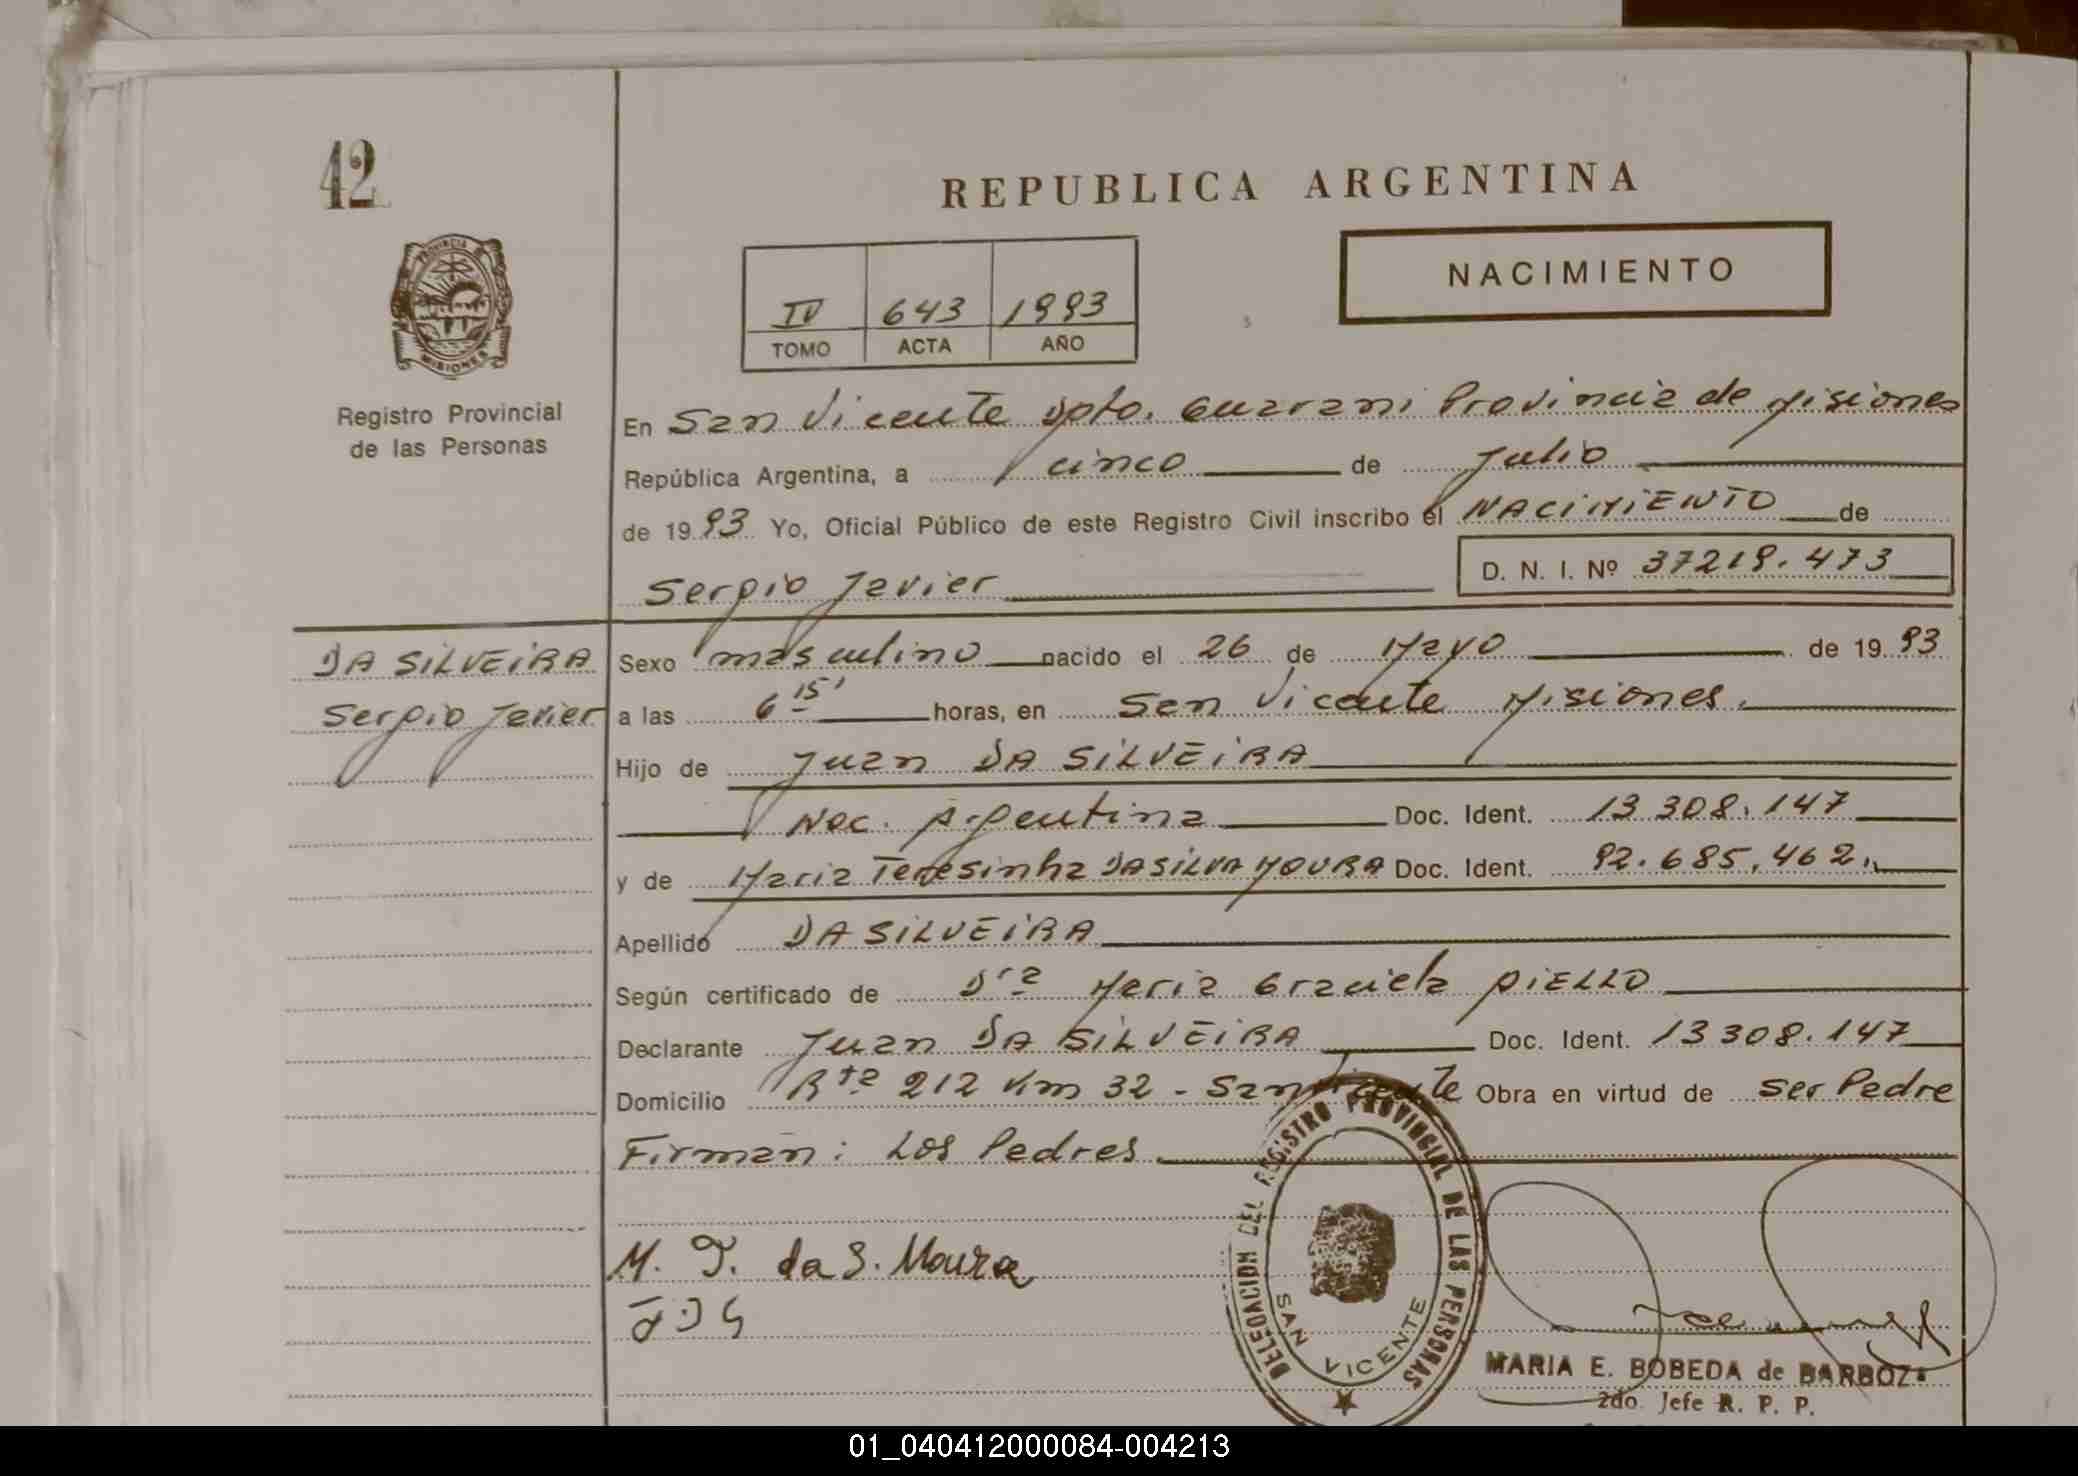 42
PROVINCIA DE
MISIONES
Registro Provincial
de las Personas
REPUBLICA ARGENTINA
NACIMIENTO
IV 643 1993
TOMO ACTA AÑO
En San Vicente Dpto. Guarani Provincia de Misiones
República Argentina, a cinco de Julio
de 1993 Yo, Oficial Público de este Registro Civil inscribo el NACIMIENTO de
Sergio Javier D. N. I. Nº 37219.473
DA SILVEIRA
Sergio Javier
Sexo masculino nacido el 26 de Mayo de 1993
a las 6 15' horas, en San Vicente Misiones.
Hijo de Juan DA SILVEIRA
Nac. Argentina Doc. Ident. 13 308.147
y de Maria Teresinha DA SILVA MOURA Doc. Ident. 92.685.462.
Apellido DA SILVEIRA
Según certificado de Dra Maria Graciela PIELLO
Declarante Juan DA SILVEIRA Doc. Ident. 13 308.147
Domicilio Rta 212 Km 32 - San Vicente Obra en virtud de ser Padre
Firman: Los Padres
M. T. da S. Moura
DELEGACION DEL REGISTRO PROVINCIAL DE LAS PERSONAS
SAN VICENTE
MARIA E. BOBEDA de BARBOZA
2do. Jefe R. P. P.
01_040412000084-004213